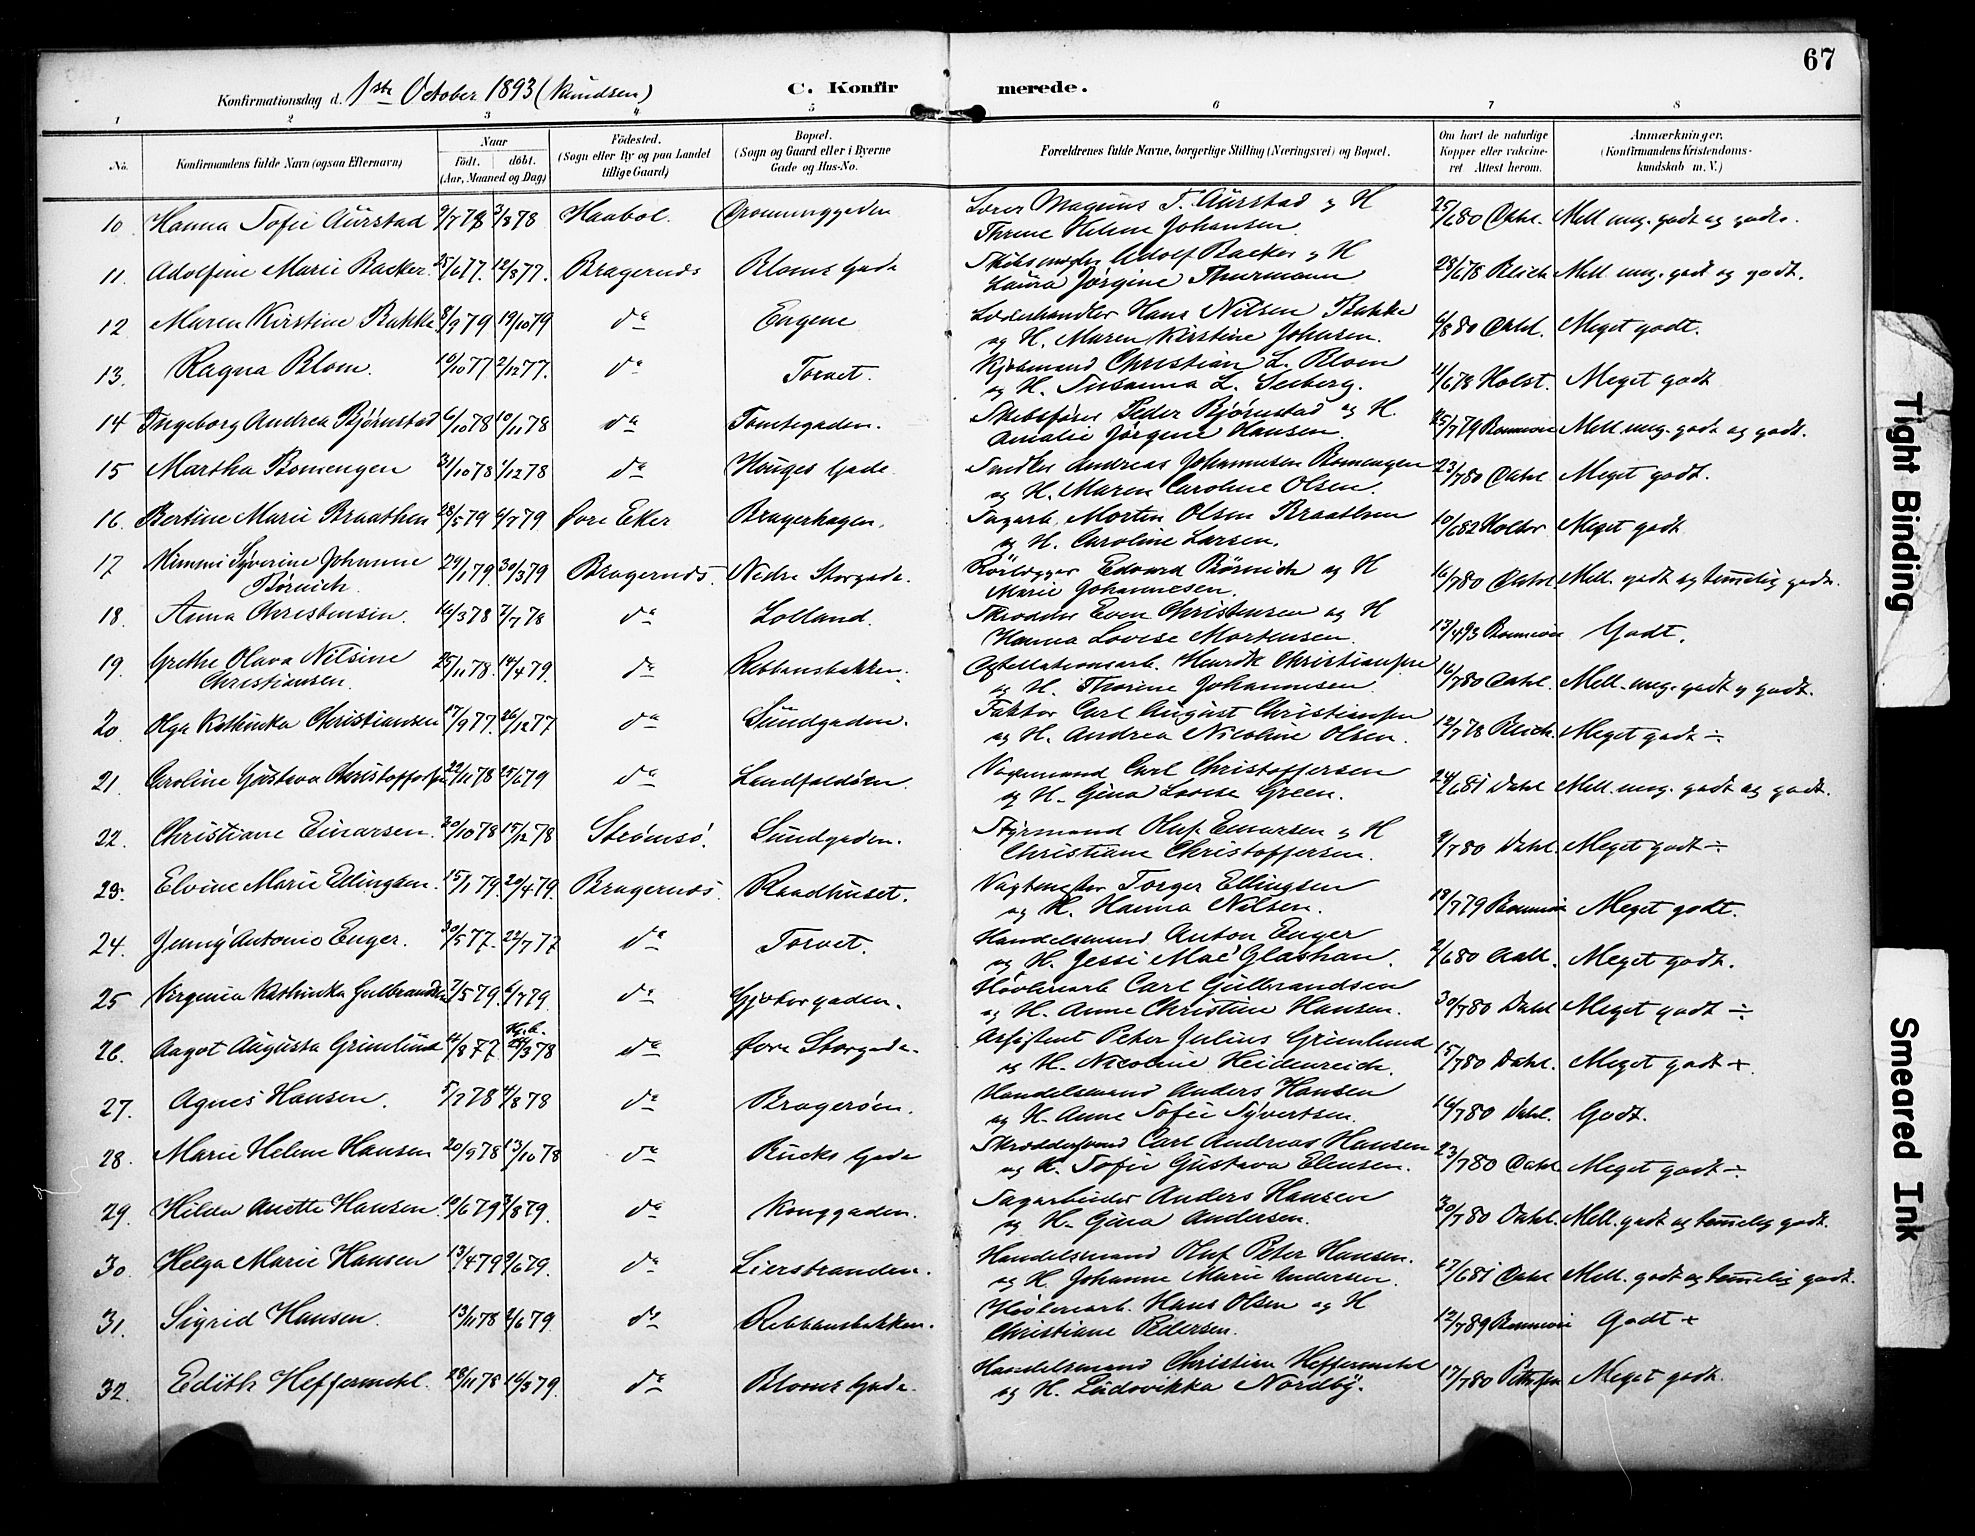 67
Konfirmationsdag d. 1ste October 1893 (Knudsen) C. Konfirmerede.
1 2 3 4 5 6 7 8
No. Konfirmandens fulde Navn (ogsaa Efternavn) Naar født. døbt. (Aar, Maaned og Dag) Fødested. (Sogn eller By og paa Landet tillige Gaard) Bopæl. (Sogn og Gaard eller i Byerne Gade og Hus-No. Forældrenes fulde Navne, borgerlige Stilling (Næringsvei) og Bopæl. Om havt de naturlige Kopper eller vaccineret Attest herom. Anmærkninger. (Konfirmandens Kristendomskundskab m. V.)
10 Hanna Sofie Aürstad 9/7 78 3/8 78 Haabøl. Dronninggaden Lærer Magnus T. Aürstad og H
Thrine Helene Johansen. 25/6 80 Dahl. Mell. mg. godt og godt.
11. Adolfine Marie Backer. 25/6 77. 12/8 77. Bragernæs Bloms Gade Skibsmægler Adolf Backer og H
Laura Jørgine Thurmann 28/6 78 Reich. Mell. mg. godt og godt.
12 Maren Kirstine Bakke 8/9 79 19/10 79 da Engene Læderhandler Hans Nilsen Bakke
og H. Maren Kirstine Johnsen. 6/8 80 Dahl. Meget godt.
13. Ragna Blom. 10/10 77 2/12 77. da Torvet. Kjøbmand Christian L. Blom
og H. Susanna L. Seeberg. 4/6 78 Holst. Meget godt
14 Ingeborg Andrea Bjørnstad 6/10 78 10/11 78 da Tomtegaden. Skibsfører Peder Bjørnstad og H.
Amalie Jørgine Hansen. 25/7 79 Mell. mg. godt og godt.
15 Martha Bomengen 31/10 78 1/12 78 da Hauges Gade Snedker Andreas Johannesen Bomengen
og H. Maren Caroline Olsen. 23/7 80 Dahl Meget godt.
16. Bertine Marie Braathen 28/5 79 6/7 79 Øvre Eker Bragerhagen. Sagarb. Morten Olsen Braathen
og H. Caroline Larsen. 10/6 82 Holter Meget godt
17 Mimmi Syverine Johanne
Børnich. 24/1 79. 30/3 79 Bragernæs. Nedre Storgade. Rörlægger Edvard Börnich og H
Marie Johannesen. 16/7 80 Dahl. Mell. godt og temmelig godt.
18. Anna Christensen. 16/3 78 7/7 78 da Lolland. Skrædder Even Christensen og H
Hanna Lovise Mortensen. 13/4 93 Godt.
19. Grethe Olava Nilsine
Christiansen. 25/11 78. 14/4 79. da Rebbansbakken. Henrik Christiansen
og H. Thorine Johannesen. 16/7 80 Dahl. Mell. mg. godt og godt.
20. Olga Kathinka Christiansen 17/9 77. 26/12 77 da Sundgaden. Faktor Carl August Christiansen
og H. Andrea Nicoline Olsen. 12/7 78 Reich. Meget godt ÷
21. Caroline Gustava Christoffersen 22/11 78 25/6 79 da Landfaldøen. Vognmand Carl Christoffersen
og H. Gina Lovise Green. 24/6 81 Dahl Mell. mg. godt og godt.
22. Christiane Einarsen. 20/10 78 15/12 78 Strømsö. Sundgaden. Styrmand Oluf Einarsen og H
Christiane Christoffersen. 9/7 80 Dahl. Meget godt ÷
23. Elvine Marie Ellingsen. 15/1 79. 20/4 79. Bragernæs. Raadhuset. Vagtmester Torger Ellingsen
og H. Hanna Nilsen. 18/7 79 Meget godt.
24. Jenny Antonie Enger. 30/5 77. 22/7 77 da Torvet. Handelsmand Anton Enger
og H. Jessi Mac Glashan. 2/6 80 Aall. Meget godt.
25 Virginia Kathinka Gulbrandsen 7/5 79. 6/7 79. da Gjetergaden. Høvleriarb Carl Gulbrandsen
og H. Anne Christine Hansen. 30/7 80 Dahl Meget godt ÷
26. Aagot Augusta Grimlund 14/8 77. Hj.d. 24/3 78 da Øvre Storgade. Assistent Peter Julius Grimlund
og H. Nicoline Heidenreich. 15/7 80 Dahl. Meget godt +.
27. Agnes Hansen. 5/7 78 4/8 78 da Bragerøen. Handelsmand Anders Hansen
og H. Anne Sofie Syvertsen. 16/7 80 Dahl. Godt.
28. Marie Helene Hansen 20/9 78 13/10 78 da Bucks Gade Skræddersvend Carl Andreas Hansen
og H. Sofie Gustava Elensen. 23/7 80 Dahl Meget godt ÷
29. Hilda Anette Hansen. 10/6 79 3/8 79. da Konggaden. Sagarbeider Anders Hansen
og H. Gina Andersen. 30/7 80 Dahl. Mell. godt og temmelig godt.
30. Helga Marie Hansen 13/4 79 9/6 79. da Lierstranden. Handelsmand Oluf Peter Hansen.
og H. Johanne Marie Andersen. 17/6 81 Dahl Mell. godt og temmelig godt.
31. Sigrid Hansen. 13/11 78 2/6 79. da Rebbansbakken. Høvleriarb. Hans Olsen og H
Christiane Pedersen. 12/7 89 Godt +
32. Edith Heffermehl. 28/11 78 16/3 79. da Bloms Gade. Handelsmand Christian Heffermehl
og H. Ludovikka Nordby. 17/7 80 Meget godt.
Tight Binding
Smeared Ink